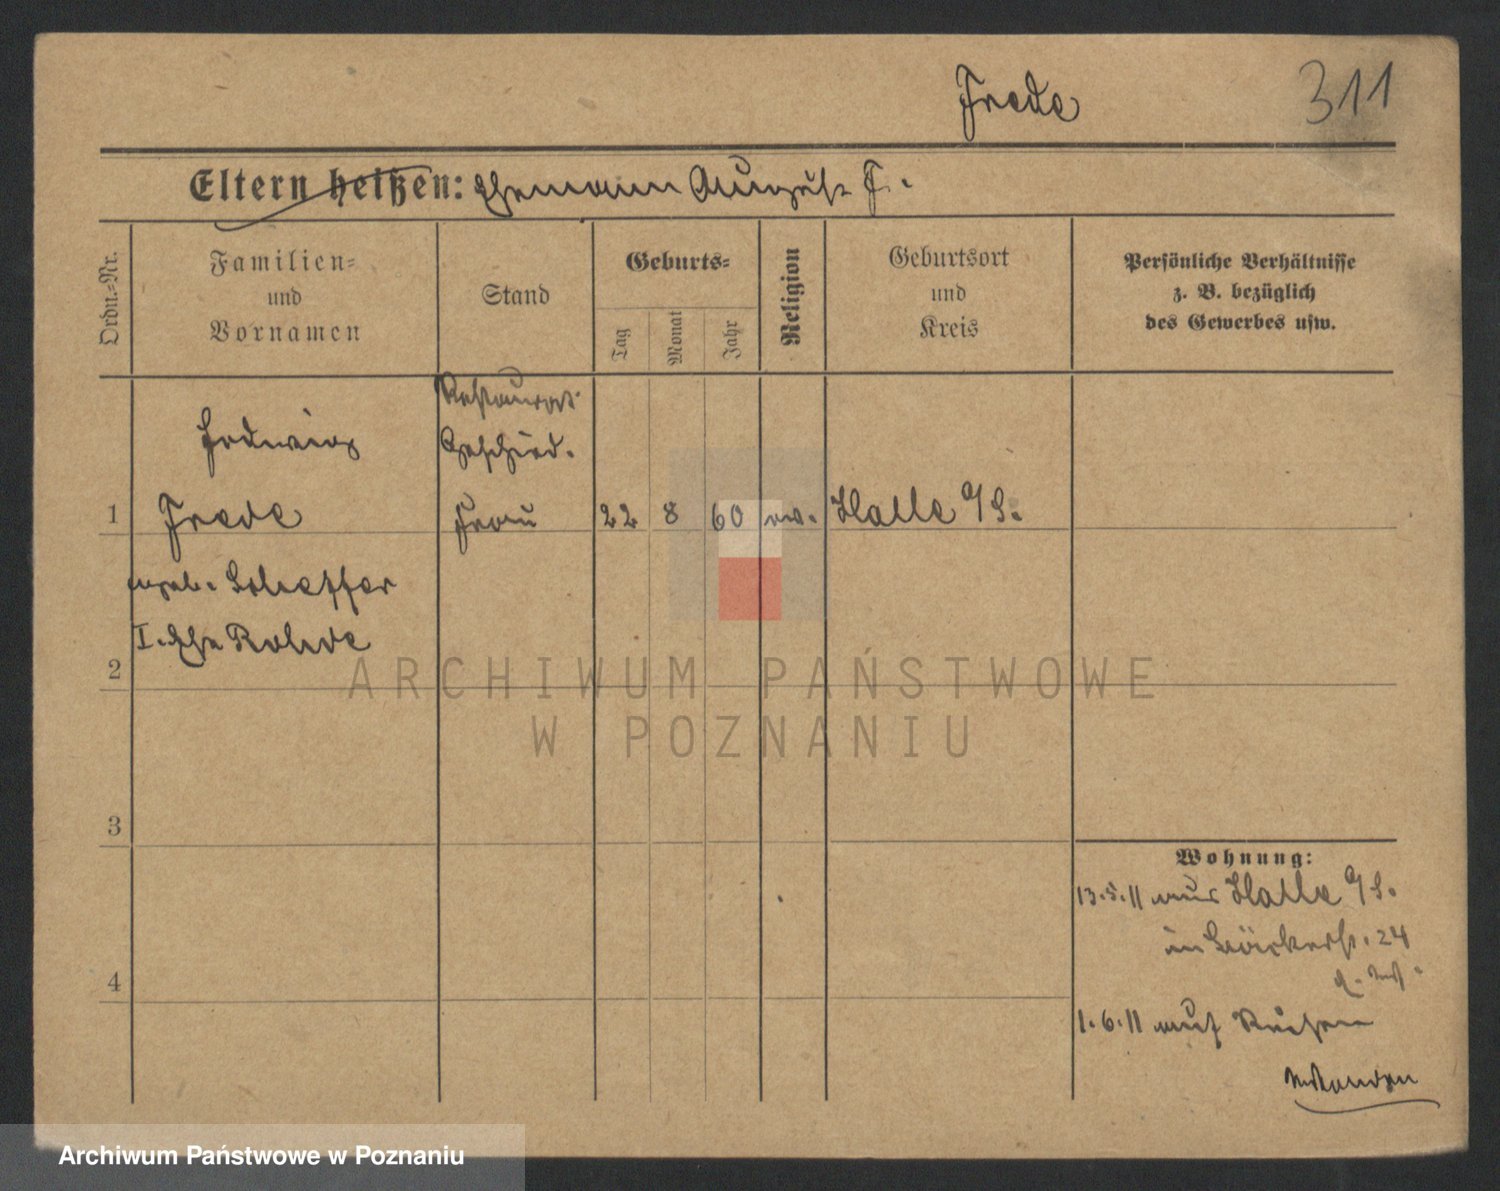 Frede
311
Eltern heißen: Ehemann August F.
Ordn.-Nr.
Familien-
und
Vornamen
Stand
Geburts-
Tag
Monat
Jahr
Religion
Geburtsort
und
Kreis
Persönliche Verhältnisse
z. B. bezüglich
des Gewerbes usw.
Hedwig
Geschied.
1 Frede Frau 22 8 60 ev. Halle a/S.
geb. Scheffer
I. Ehe Rohde
2
ARCHIWUM PAŃSTWOWE
W POZNANIU
3
Wohnung:
13.5.11 aus Halle a/S.
in 24
4
1.6.11 auf Reisen
Archiwum Państwowe w Poznaniu